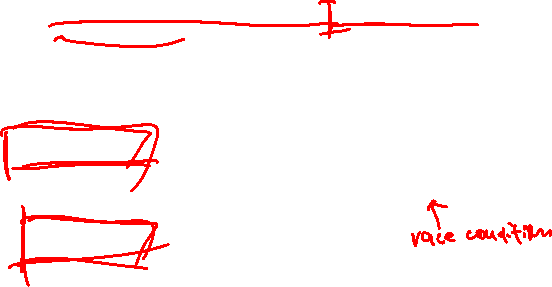 race condition